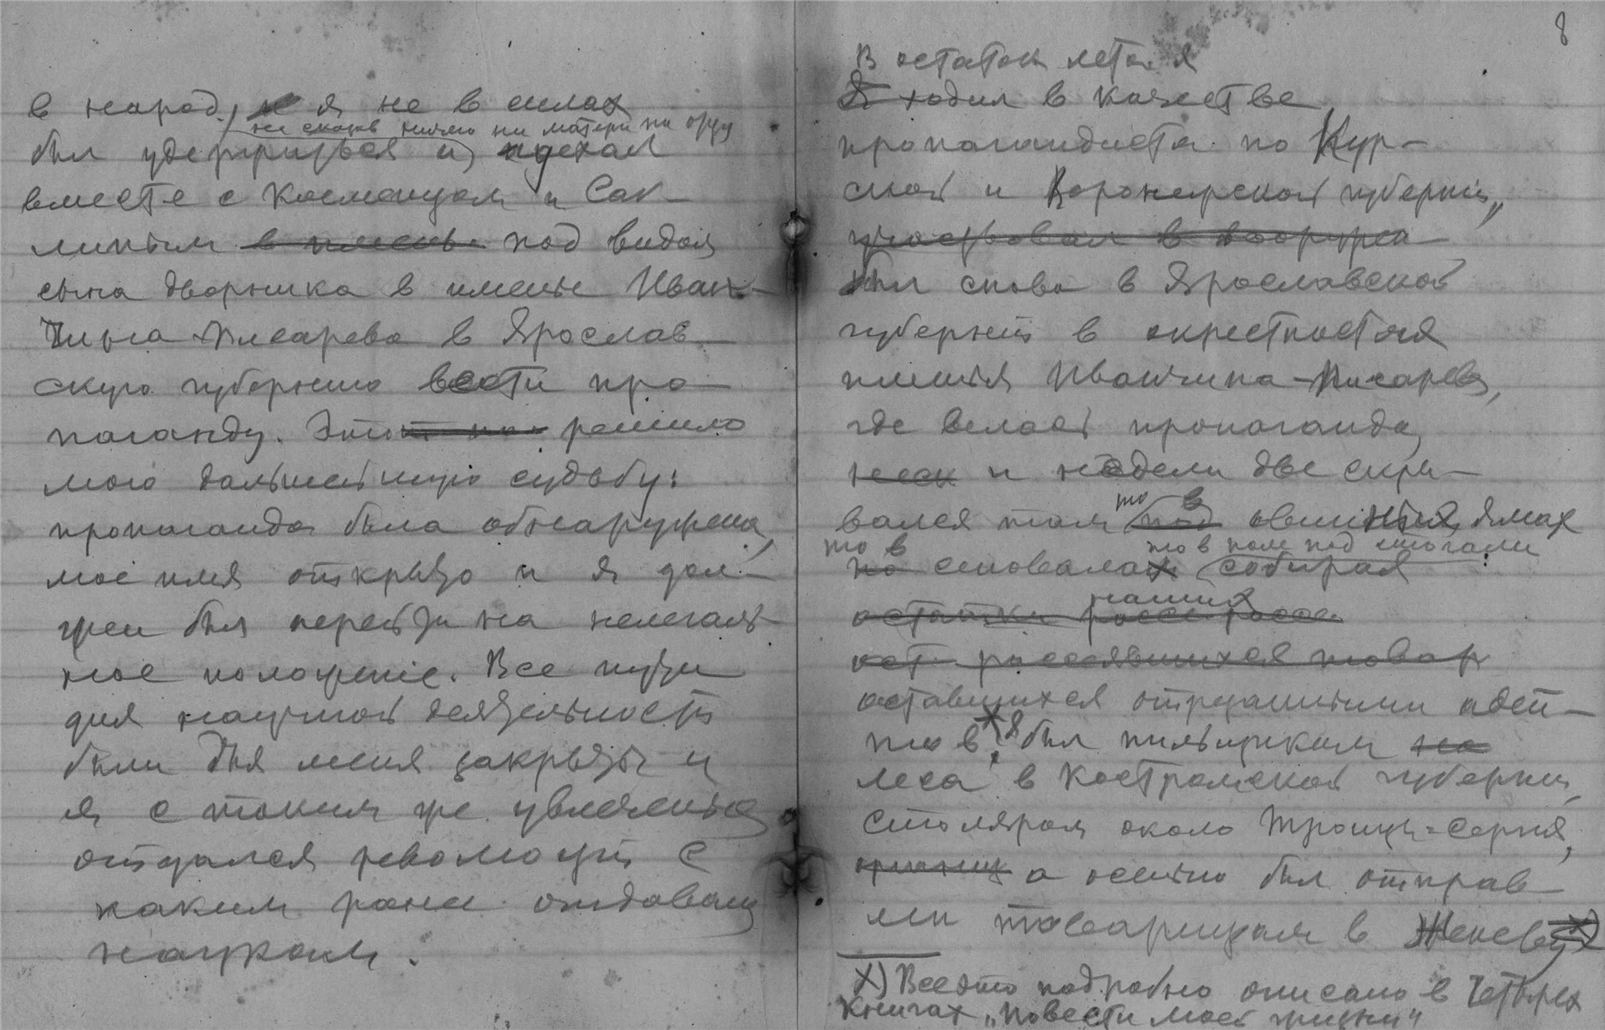 в народ, и я не в силах
не сказав ничего ни матери ни отцу
был удержаться и уехал
вместе с Клеменцом и Саб-
линым в именье под видом
сына дворника в именье Иван-
чина-Писарева в Ярослав-
скую губернию вести про-
паганду. Это решило
мою дальнейшую судьбу:
пропаганда была обнаружена,
мое имя открыто и я дол-
жен был перейти на нелегаль-
ное положеніе. Все пути
для научной деятельности
были для меня закрыты и
я с таким же увлеченьем
отдался революціи с
каким ранее отдавался
наукам.
8
В остаток лета я
Я ходил в качестве
пропагандиста по Кур-
ской и Воронежской губерніи,
участвовал в вооруже
был снова в Ярославской
губерніи в окрестностях
именья Иванчина-Писарева,
где велась пропаганда,
и недели две скры-
то в
вался там под овинных ямах
то в то в поле под стогами
по сеновалам собирая
наших
остатки рассе рассе
ост рассеявшихся товар
оставшихся отрезанными адеп-
тов, я был пильщиком
леса в Костромской губернии,
столяром около Троицы-Сергія,
а осенью был отправ-
лен товарищами в Женеву х)
х) Все это подробно описано в четырех
книгах „Повести моей жизни"